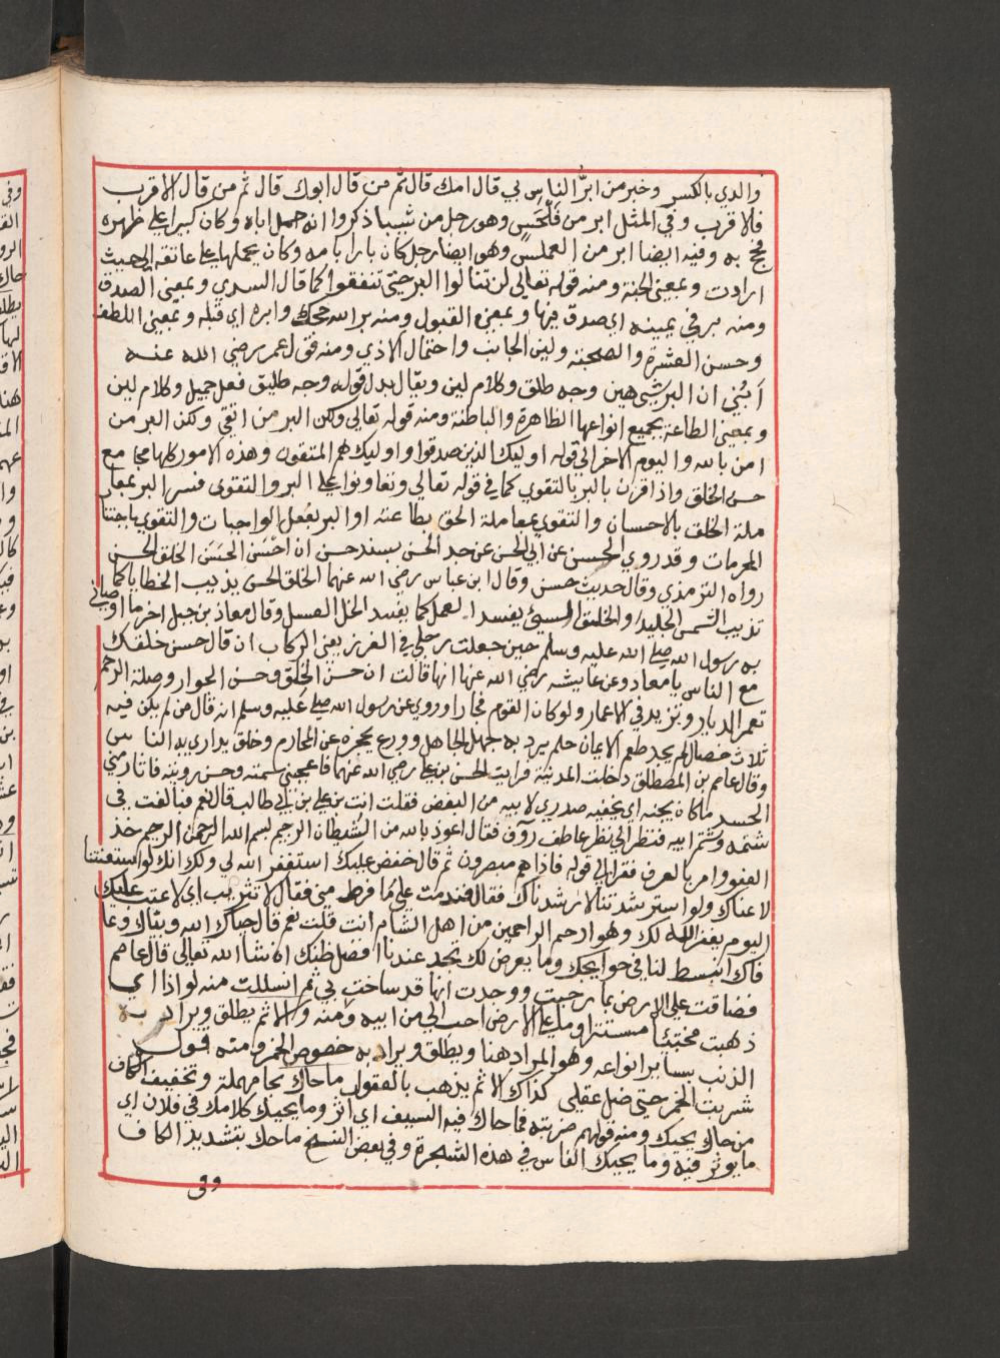 والدي بالكسر وخبر من ابرّ الناس بي قال امك قال ثم من قال ابوك قال ثم من قال الاقرب
فالاقرب وفي المثل ابر من فلحس وهو رجل من شيبا ذكروا انه حمل اباه وكان كبيرا على ظهره
فحج به وفيه ايضا ابر من العملس وهو ايضا رجل كان بارا بامه وكان يحملها على عاتقه الى حيث
ارادت وبمعنى الجنة ومنه قوله تعالى لن تنالوا البر حتى تنفقوا كما قال السدي وبمعنى الصدق
ومنه بر في يمينه اي صدق فيها وبمعنى القبول ومنه بر الله حجك وابره اي قبله وبمعنى اللطف
وحسن العشرة والصحبة ولين الجانب واحتمال الاذي ومنه قول عمر رضي الله عنه
اَبُنيّ ان البر شي هين وجه طلق وكلام لين ويقال بدل قوله وجه طليق فعل جميل وكلام لين
وبمعنى الطاعة بجميع انواعها الظاهرة والباطنة ومنه قوله تعالى ولكن البر من اتقى ولكن البر من
امن بالله واليوم الاخر الى قوله اوليك الذين صدقوا واوليك هم المتقون وهذه الامور كلها مجامع
حسن الخلق واذا قرن بالبر بالتقوي كما في قوله تعالي وتعاونوا على البر والتقوى فسر البر بمعا
ملة الخلق بالاحسان والتقوي بمعاملة الحق بطاعته او البر بفعل الواجبات والتقوي باجتنا
المحرمات وقد روي الحسن عن ابي الحسن عن جد الحسن بسند حسن ان احسن الحسن الخلق الحسن
رواه الترمذي وقال حديث حسن وقال ابن عباس رضي الله عنهما الخلق الحسن يذيب الخطايا كما
تذيب الشمس الجليد والخلق السيئ يفسد العمل كما يفسد الخل العسل وقال معاذ بن جبل اخر ما اوصاني
به رسول الله صلى الله عليه وسلم حين جعلت رجلي في الغرز يعني الركاب ان قال حسن خلقك
مع الناس يا معاذ وعن عايشه رضي الله عنها انها قالت ان حسن الخلق وحسن الجوار وصلة الرحم
تعمر الديار وتزيد في الاعمار ولو كان القوم فجارا وروي عن رسول الله صلى عليه وسلم انه قال من لم يكن فيه
ثلاث خصال لم يجد طعم الايمان حلم يرد به جهل الجاهل وورع يحجزه عن المحارم وخلق يداري به الناس
وقال عاصم بن المصطلق دخلت المدينة فرايت الحسن بن علي رضي الله عنهما فاعجبني سمته وحسن رويته فاثار مني
الحسد ما كان يجنه اي يخفيه صدري لابيه من البغض فقلت انت بن علي بن ابي طالب قال نعم فبالغت في
شتمه وشتم ابيه فنظر الي نظر عاطف روف فقال اعوذ بالله من الشيطان الرجيم بسم الله الرحمن الرحيم خذ
العفو وامر بالعرف فقرا الى قوله فاذا هم مبصرون ثم قال خفض عليك استغفر الله لي ولك انك لو استعنتنا
لاعناك ولو استرشدتنا لارشدناك فقال فندمت على ما فرط مني فقال لا تثريب اي لا عتب عليك
اليوم يغفر الله لك وهو ارحم الراحمين من اهل الشام انت قلت نعم قال حياك الله وبياك وعا
فاك انبسط لنا في حوايجك وما يعرض لك تجد عندنا افضل ظنك ان شا الله تعالى قال عاصم
فضاقت على الارض بما رحبت ووددت انها قد ساخت بي ثم انسللت منه لواذا اي
ذهبت مختبئا مستترا وما على الارض احب الي من ابيه ومنه والاثم يطلق ويراد به
الذنب بسايرانواعه وهو المراد هنا ويطلق ويراد به خصوص الخمر ومنه قول
شربت الخمر حتى ضل عقلي كذاك الاثم يذهب بالعقول ما حاك بحا مهملة وتخفيف الكاف
من حاك يحيك ومنه قولهم ضربته فما حاك فيه السيف اي اثر وما يحيك كلامك في فلان اي
ما يوثر فيه وما يحيك الفاس في هذه الشجرة وفي بعض النسخ ما حك بتشديد الكاف
وفى